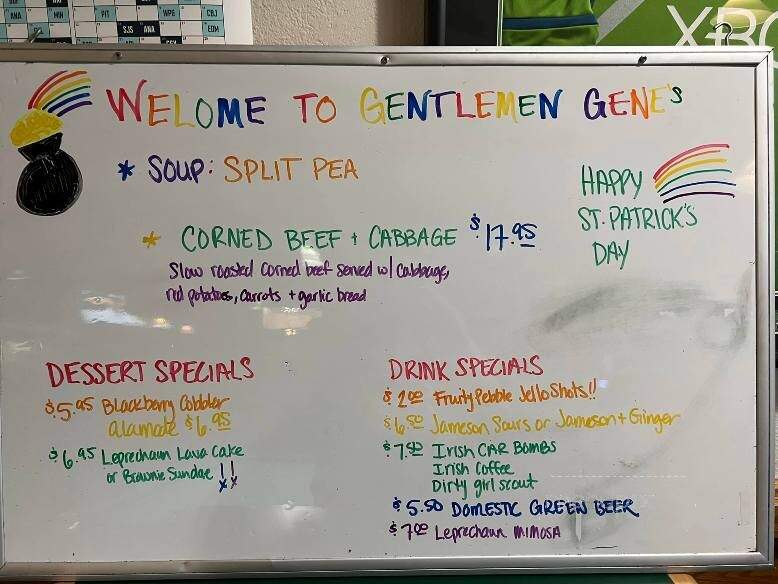 ANA MIN PIT WPG CBJ
SJS ANA EDM
XBO
WELOME TO GENTLEMEN GENE'S
* SOUP: SPLIT PEA
HAPPY
ST. PATRICK'S
DAY
* CORNED BEEF + CABBAGE $17.95
Slow roasted corned beef served w/ cabbage,
red potatoes, carrots + garlic bread
DESSERT SPECIALS
$5.95 Blackberry Cobbler
alamode $6.95
$6.95 Leprechaun Lava Cake
or Brownie Sundae !!
DRINK SPECIALS
$2.00 Fruity Pebble Jello Shots!!
$6.50 Jameson Sours or Jameson + Ginger
$7.50 Irish CAR BOMBS
Irish Coffee
Dirty girl scout
$5.50 DOMESTIC GREEN BEER
$7.00 Leprechaun MIMOSA